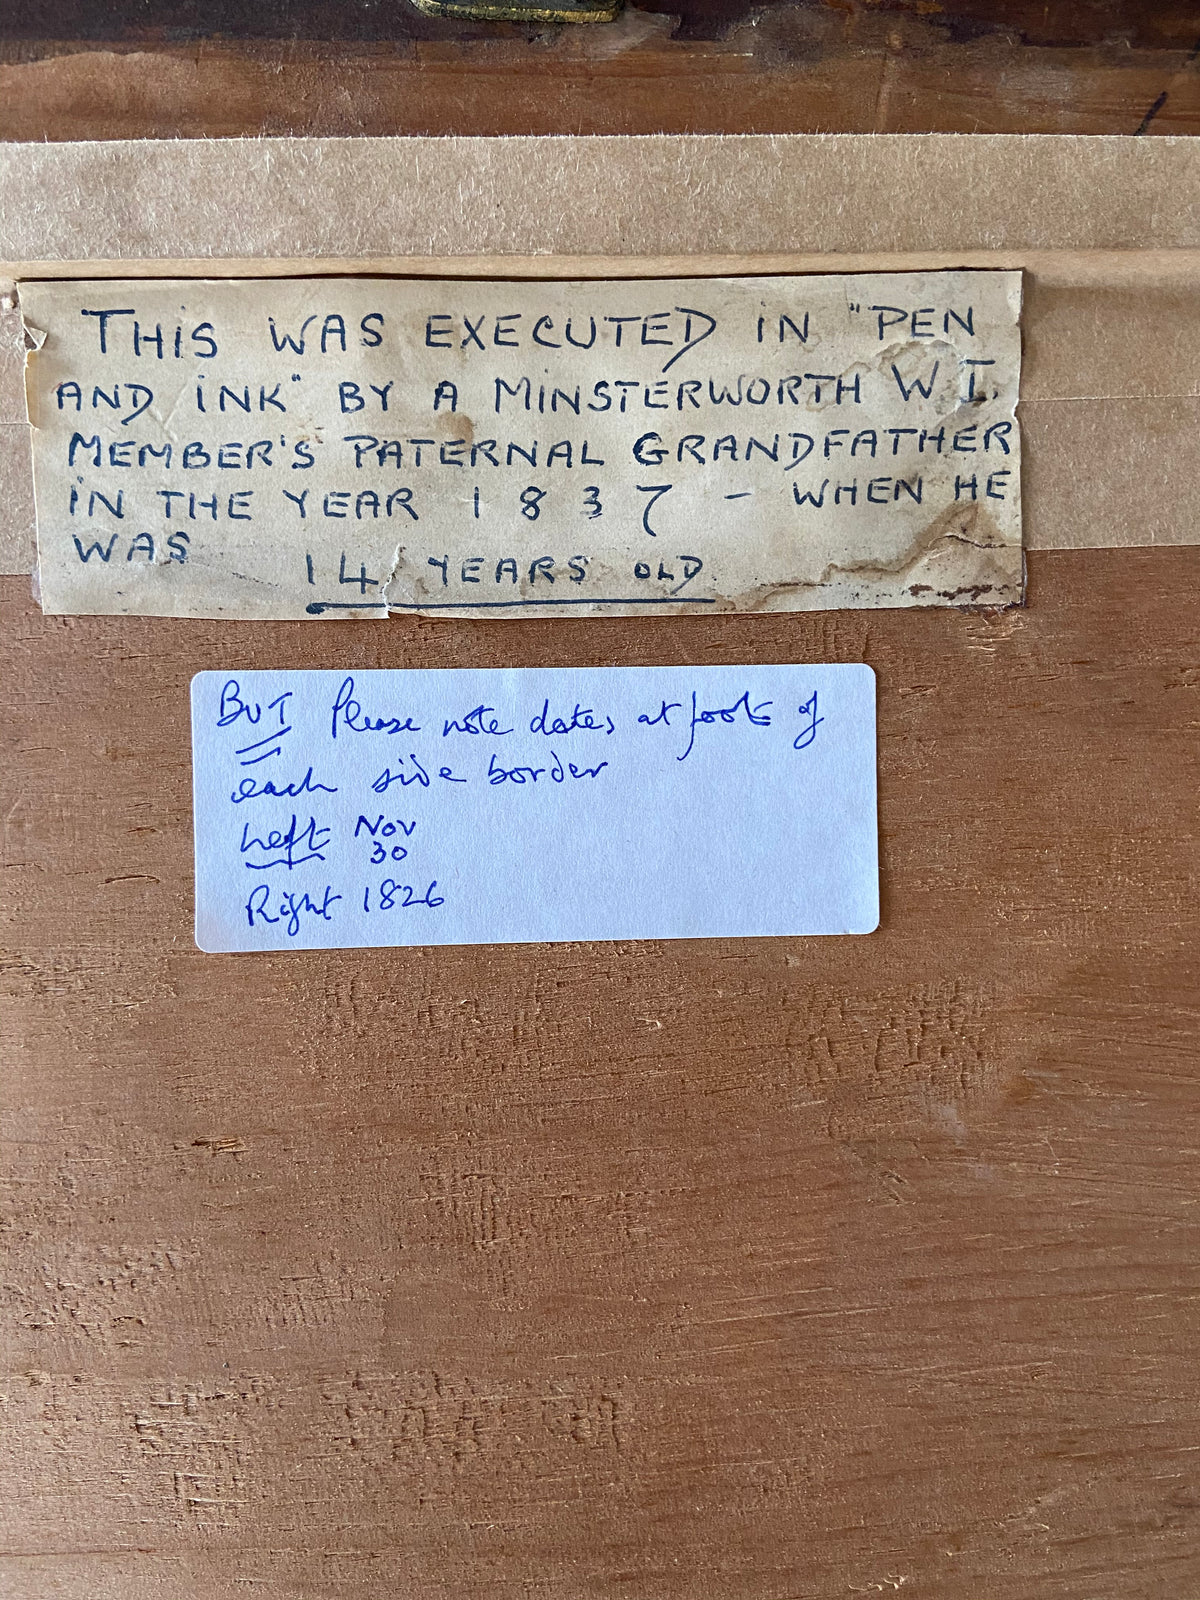 THIS WAS EXECUTED IN "PEN
AND INK" BY A MINSTERWORTH W.I.
MEMBER'S PATERNAL GRANDFATHER
IN THE YEAR 1837 - WHEN HE
WAS 14 YEARS OLD
BUT Please note dates at foots of
each side border
Left Nov
30
Right 1826